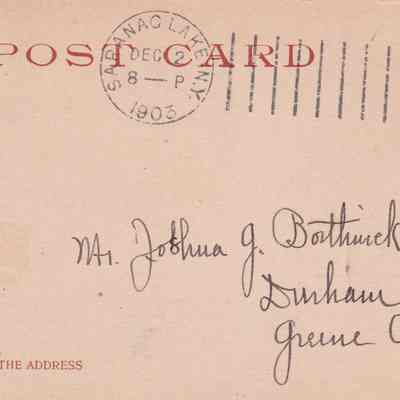 POST CARD
SARANAC LAKE N.Y.
DEC 2
8 — P
1903
Mr. Joshua G. Borthwick
Durham
Greene C
THE ADDRESS